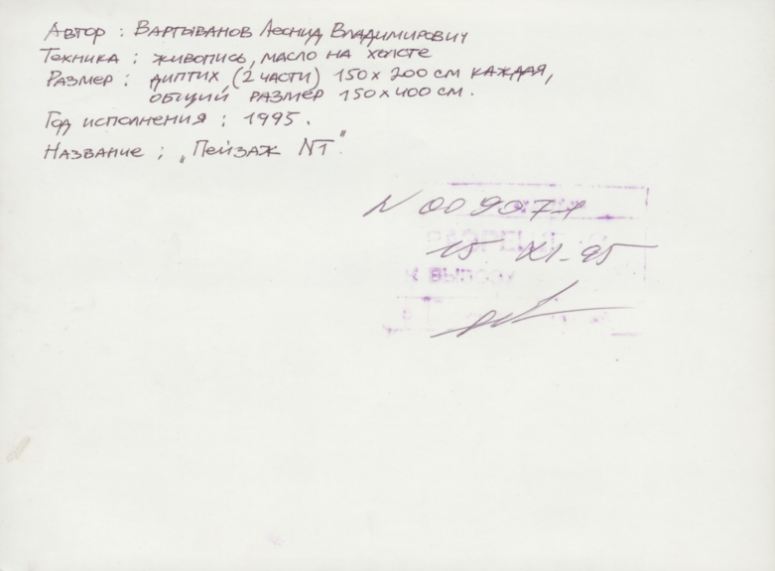 Автор : Вартыванов Леонид Владимирович
Техника : живопись, масло на холсте
Размер : диптих, (2 части) 150 х 200 см каждая,
общий размер 150 х 400 см.
Год исполнения : 1995.
Название : „Пейзаж N1"
N 009077
15 XI-95
к вывозу